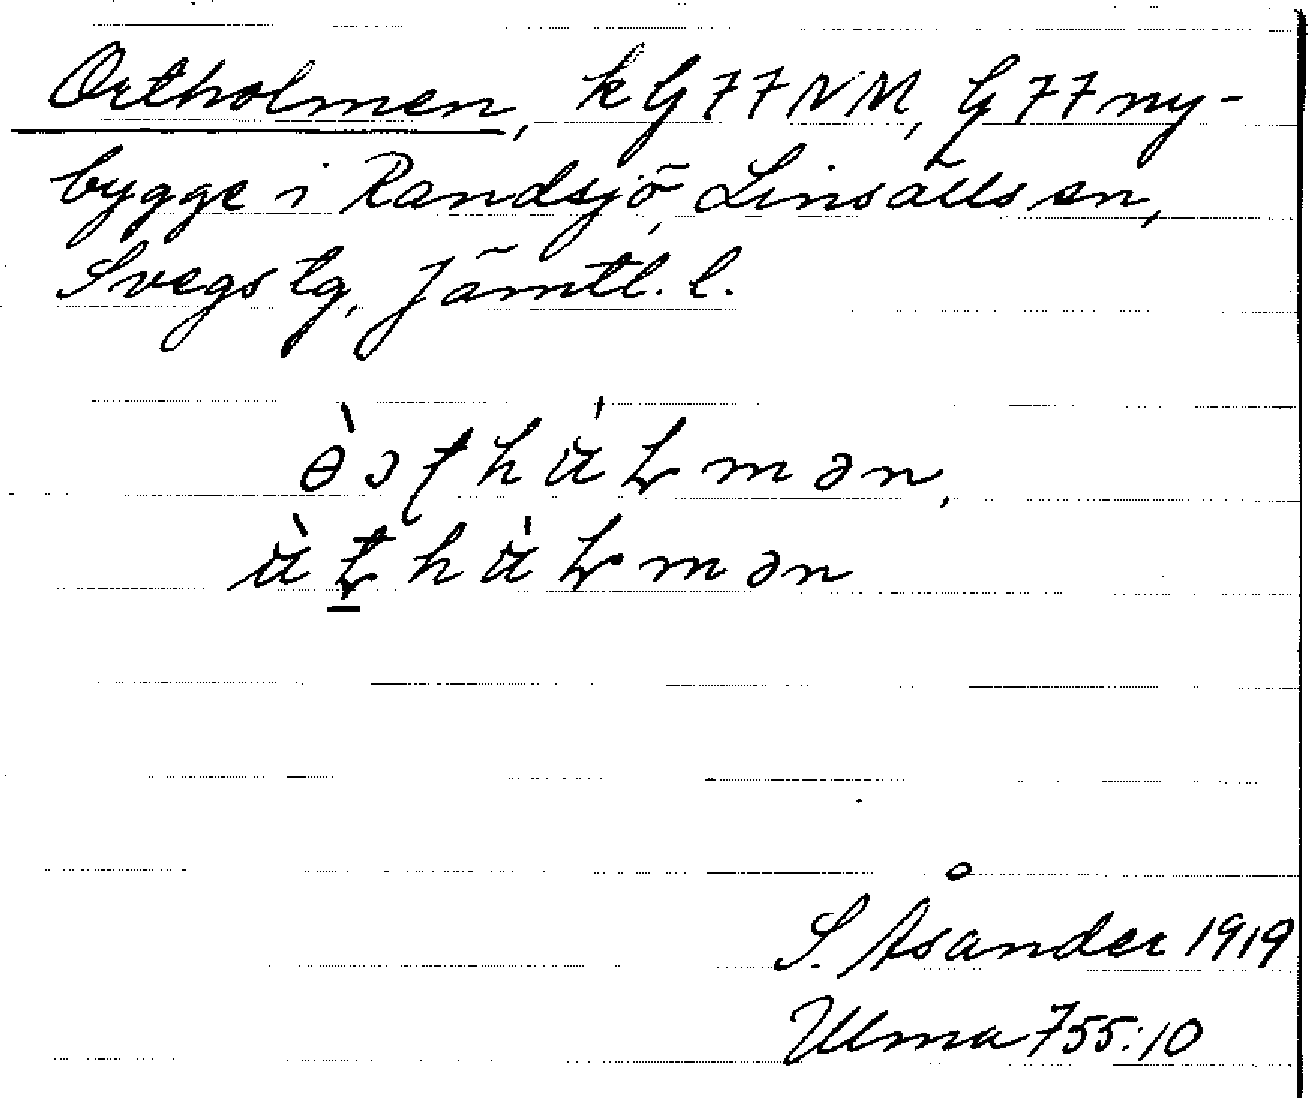 Ortholmen, k G 77 NM, G 77 ny-
bygge i Randsjö, Linsälls sn,
Svegs tg, Jämtl. l.
S. Åsander 1919
Ulma 755:10